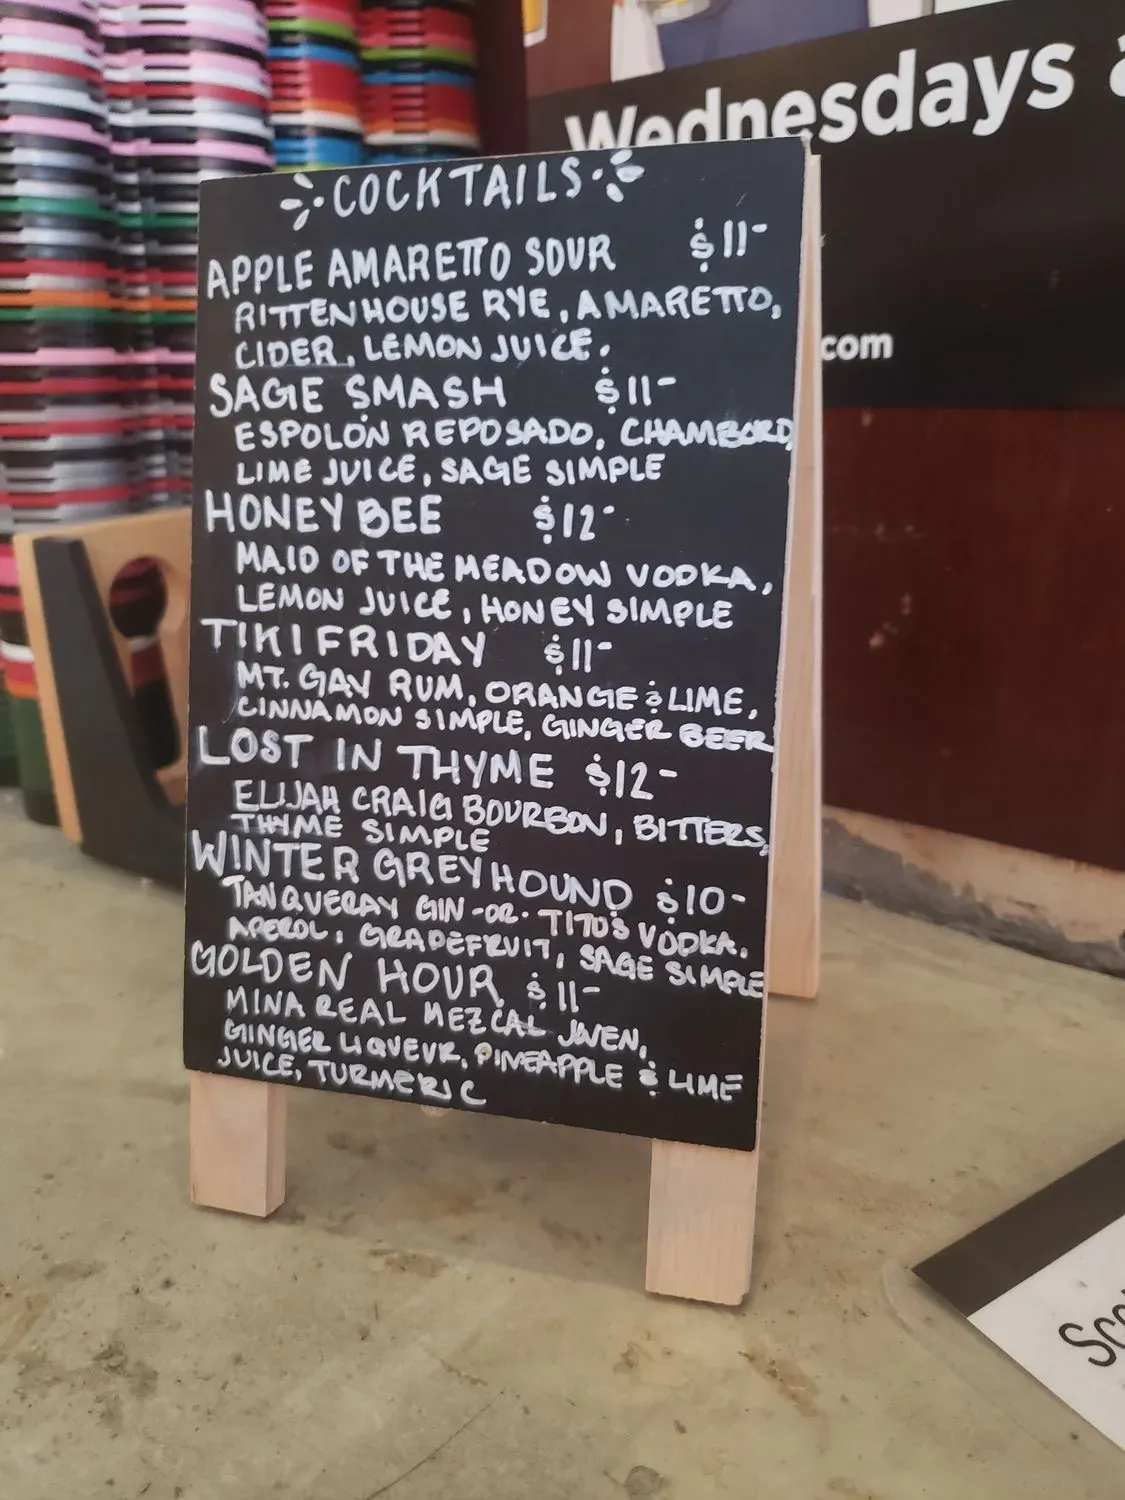 Wednesdays
.com
COCKTAILS
APPLE AMARETTO SOUR $11-
RITTENHOUSE RYE, AMARETTO,
CIDER, LEMON JUICE.
SAGE SMASH $11-
ESPOLÒN REPOSADO, CHAMBORD,
LIME JUICE, SAGE SIMPLE
HONEY BEE $12-
MAID OF THE MEADOW VODKA,
LEMON JUICE, HONEY SIMPLE
TIKI FRIDAY $11-
MT. GAY RUM, ORANGE & LIME,
CINNAMON SIMPLE, GINGER BEER
LOST IN THYME $12-
ELIJAH CRAIG BOURBON, BITTERS,
THYME SIMPLE
WINTER GREYHOUND $10-
TANQUERAY GIN -OR- TITO'S VODKA.
APEROL, GRAPEFRUIT, SAGE SIMPLE
GOLDEN HOUR $11-
MINA REAL MEZCAL JOVEN,
GINGER LIQUEUR, PINEAPPLE & LIME
JUICE, TURMERIC